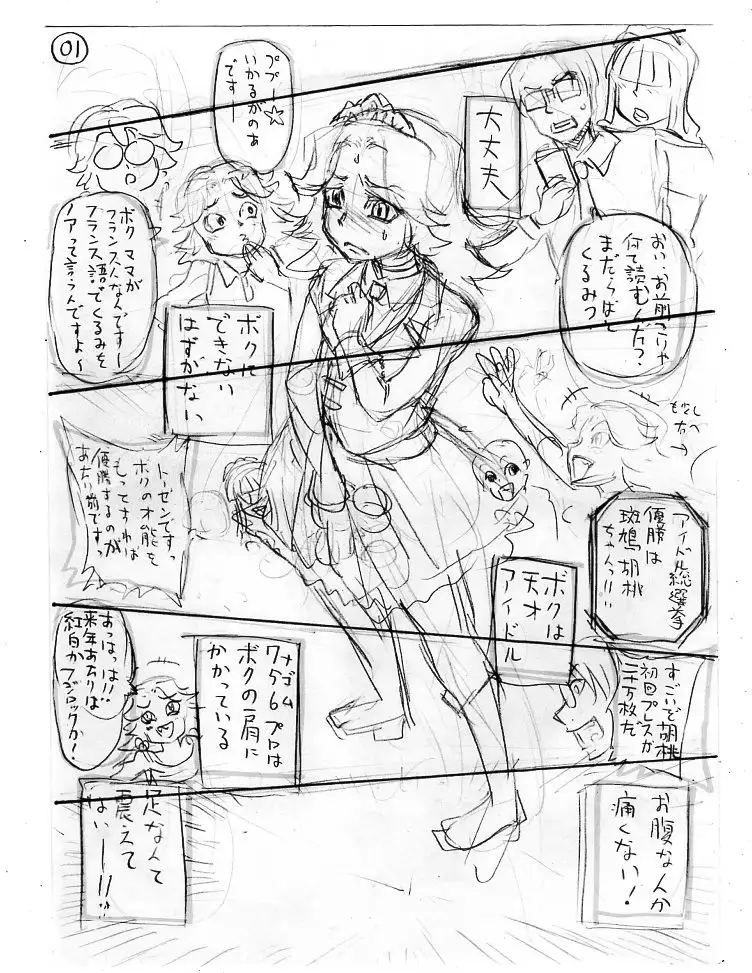 01
大丈夫
おい、お前こりゃ
何て読むんだ?
まだらばと
くるみ?
ププー☆
いかるがのぁ
ですー
ボク ママが
フランス人なんですー
フランス語でくるみを
ノアって言うんですよ〜
ボクに
できない
はずがない
アイドル総選挙
優勝は
斑鳩胡桃
ちゃんっ!!
トーゼンですっ
ボクの才能を
もってすれば
優勝するのが
あたり前ですっ
ボクは
天才
アイドル
すごいぞ胡桃
初回プレスが
二十万枚だ
プロは
ボクの肩に
かかっている
あっはっは!!
来年あたりは
紅白か
フジロックか!
お腹なんか
痛くない!
足なんて
震えて
ない——!!